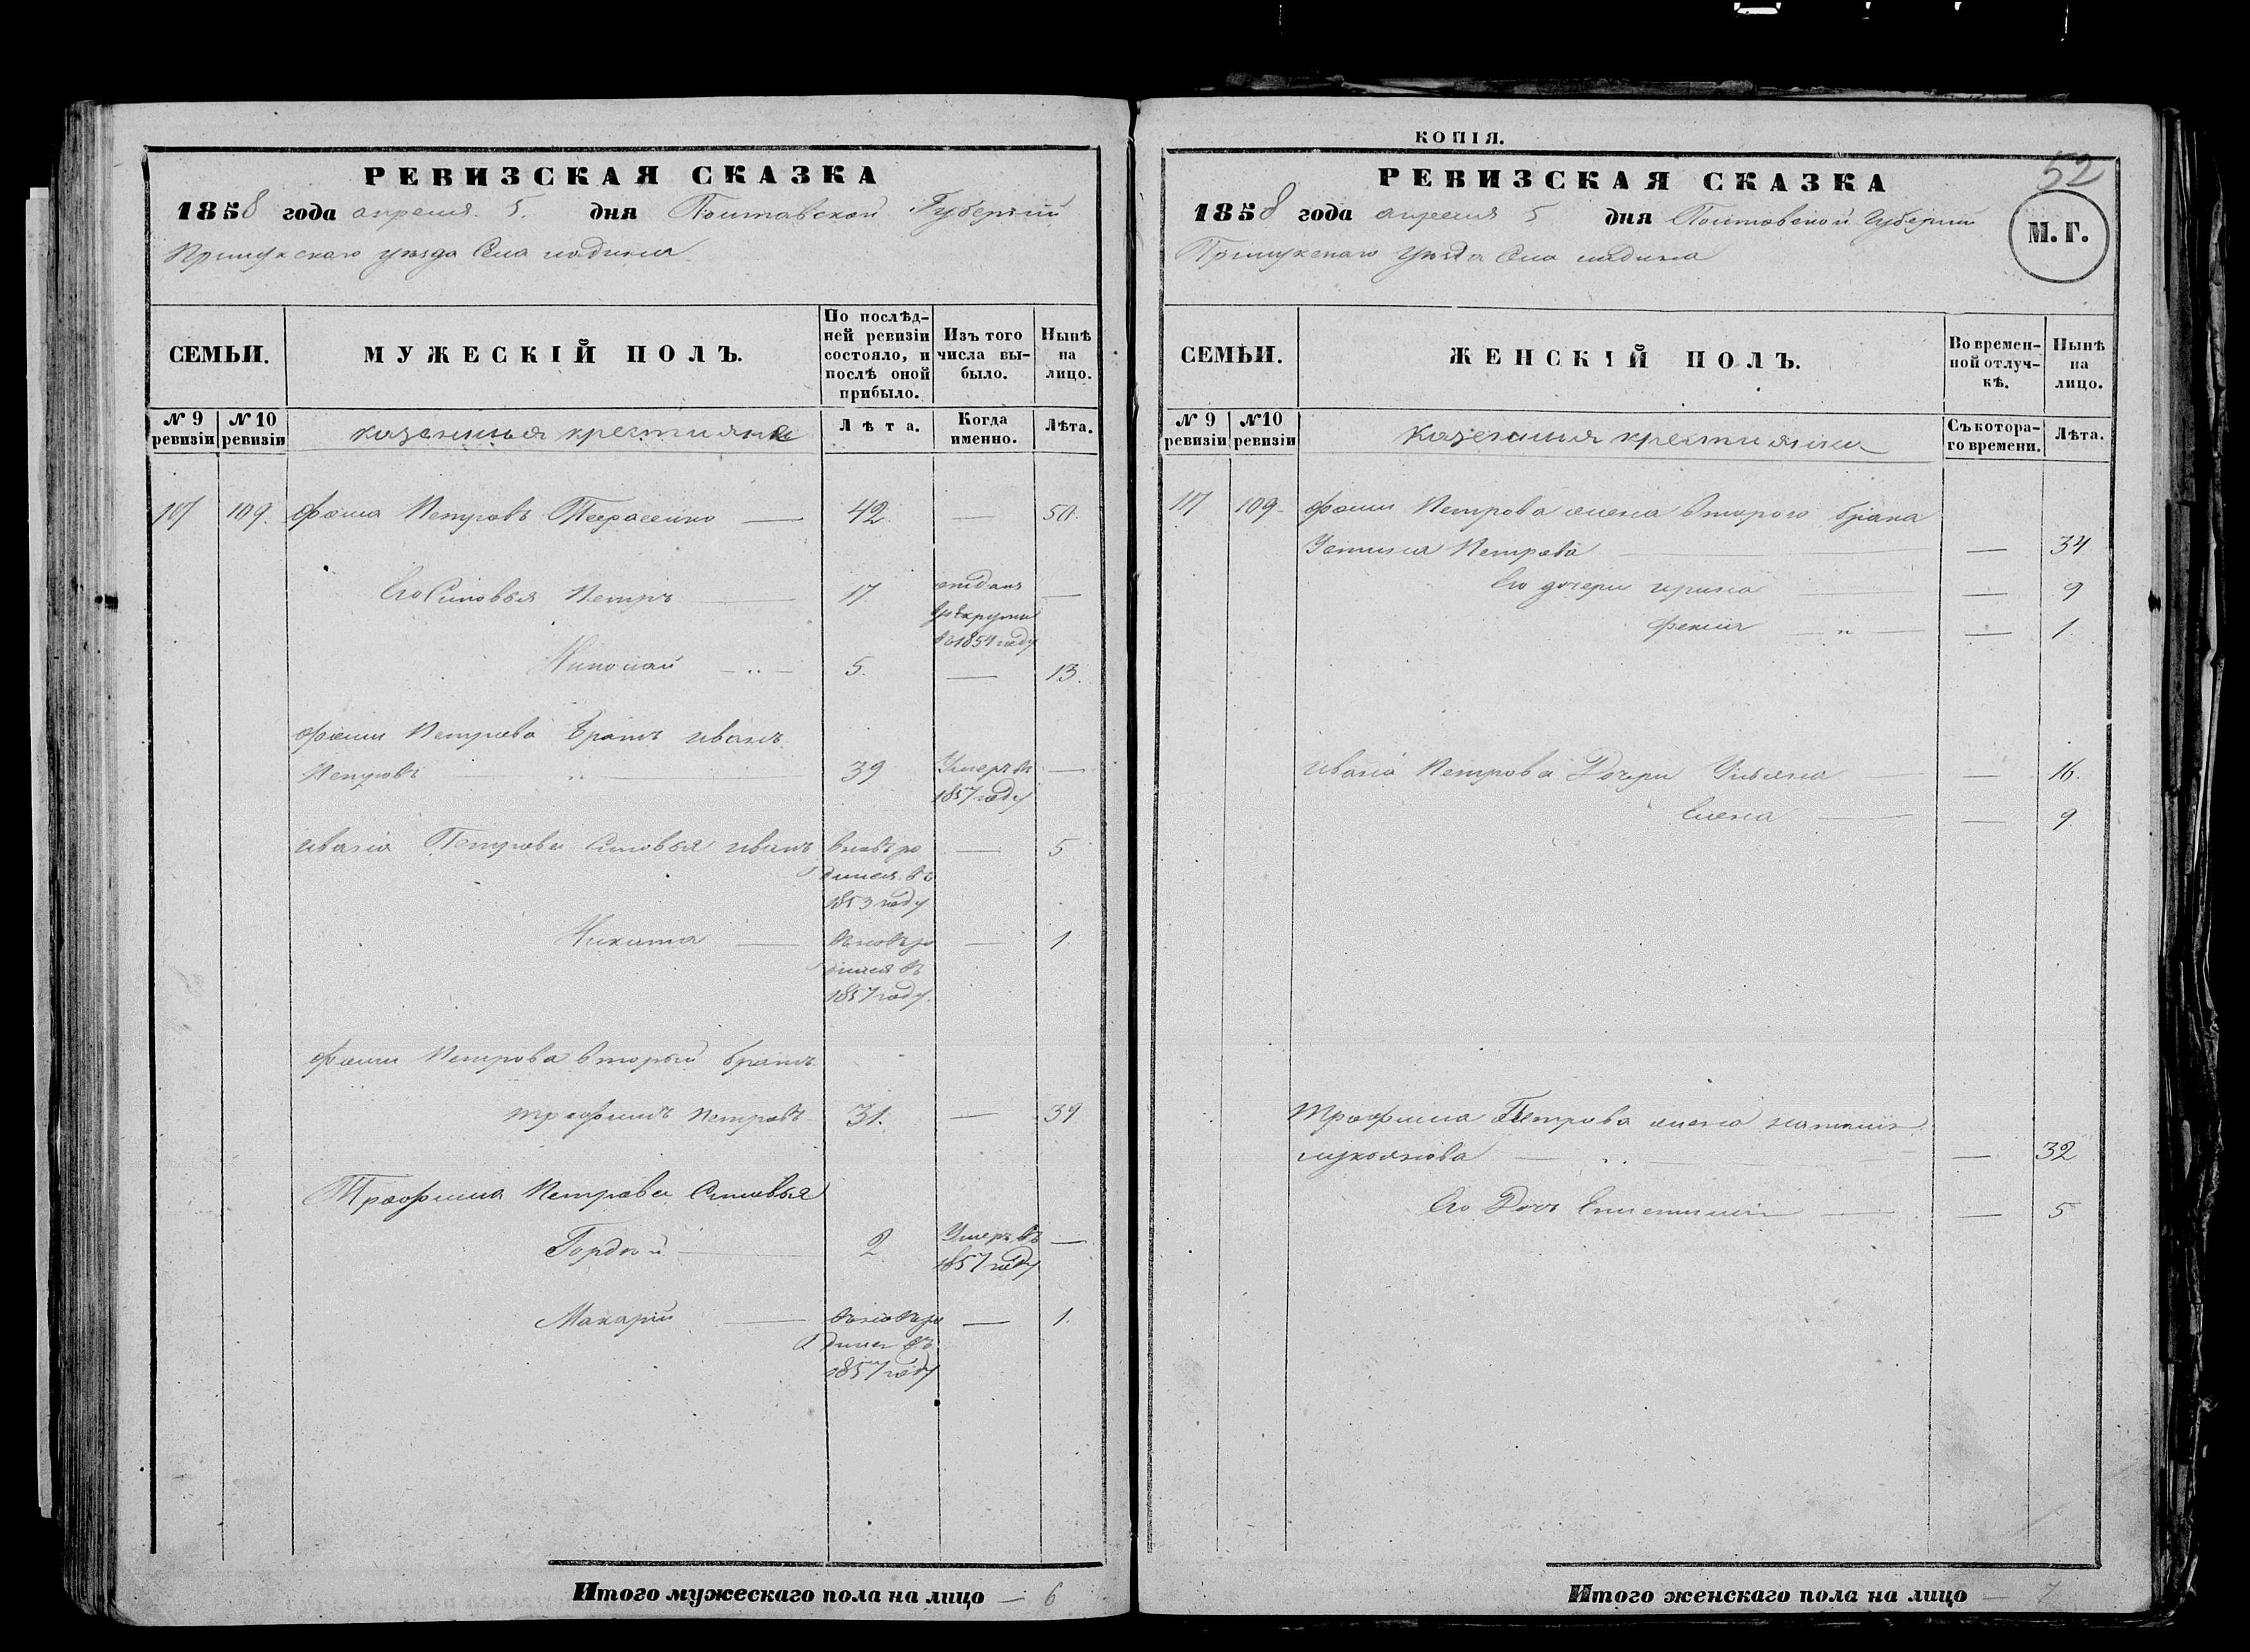 РЕВИЗСКАЯ СКАЗКА
1858 года апреля 5. дня Полтавской Губерніи
Прилукскаго уезда Села ладина
СЕМЬИ.
МУЖЕСКІЙ ПОЛЪ.
По послѣд-
ней ревизіи
состояло, и
послѣ оной
прибыло.
Изъ того
числа вы-
было.
Нынѣ
на
лицо.
№ 9
ревизіи
№ 10
ревизіи
казенныя крестияне
Лѣта.
Когда
именно.
Лѣта.
117 109. Фома Петровъ Тарасенко — 42. — 50.
Его Синовья Петръ — 17 отдан —
в рекруты
в 1854 году
Николай — 5. — 13.
Фомы Петрова братъ иванъ
Петровъ — 39 Умеръ въ —
1857 году
ивана Петрова Сыновья иванъ вновь ро — 5
дился въ
1853 году
Никита — вновь ро — 1.
дился въ
1857 году.
Фомы Петрова вторый братъ
трофимъ Петровъ 31. — 39
Трофима Петрова Сыновья
Гордѣй — 2 Умеръ въ —
1857 году
Макарій — вновь ро — 1.
дился въ
1857 году
Итого мужескаго пола на лицо — 6
КОПІЯ.
52
РЕВИЗСКАЯ СКАЗКА
1858 года апреля 5 дня Полтавской Губерніи
Прилукскаго Уезда Села ладина
М. Г.
СЕМЬИ.
ЖЕНСКІЙ ПОЛЪ.
Во времен-
ной отлуч-
кѣ.
Нынѣ
на
лицо.
№ 9
ревизіи
№10
ревизіи
Казенныя крестиянки
Съ котора-
го времени.
Лѣта.
117 109. Фомы Петрова жена втораго брака
Устина Петрова — — 34
Его дочери ирина — — 9
Фекла — — 1.
ивана Петрова Дочери Ульяна — — 16.
Елена — — 9
Трофима Петрова жена наталия
лукьянова — — 32
Его Дочь — — 5
Итого женскаго пола на лицо — 7